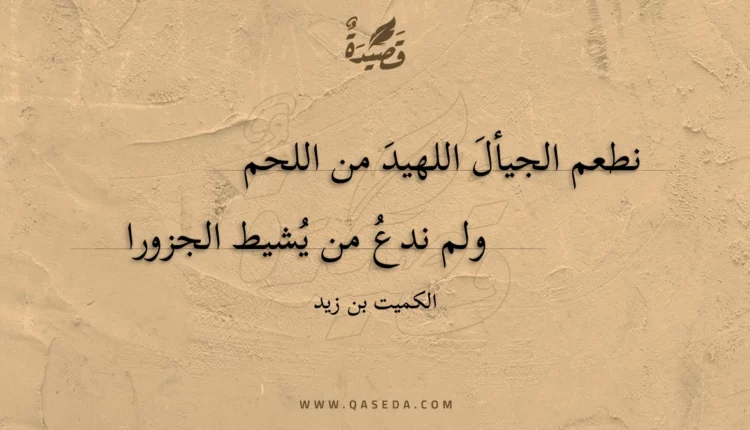 قَصِيدَةٌ
نطعم الجيألَ اللهيدَ من اللحم
ولم ندعُ من يُشيط الجزورا
الكميت بن زيد
WWW.QASEDA.COM